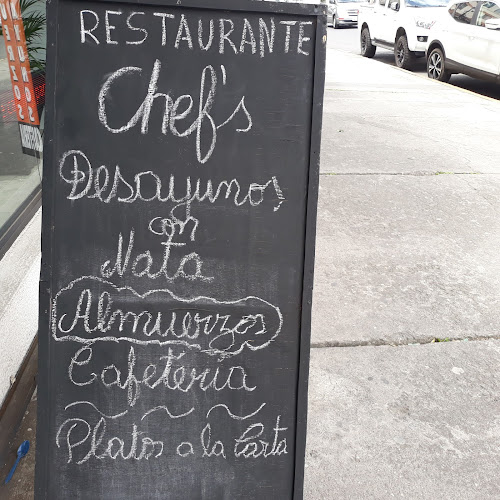 RESTAURANTE
Chef's
Desayunos
con
Nata
Almuerzos
Cafetería
Platos a la Carta